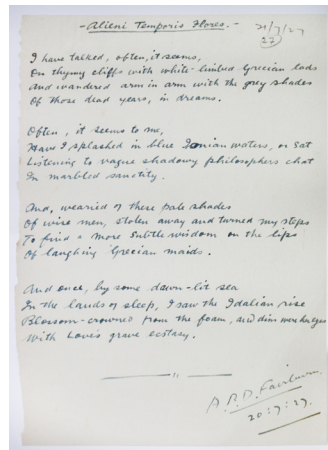 - Alieni Temporis Flores. -
21/7/27
27
I have talked, often, it seems,
On thymy cliffs with white-limbed Grecian lads
And wandered arm in arm with the grey shades
Of those dead years, in dreams.
Often, it seems to me,
Have I splashed in blue Ionian waters, or sat
Listening to vague shadowy philosophers chat
In marbled sanctity.
And, wearied of these pale shades
Of wise men, stolen away and turned my steps
To find a more subtle wisdom on the lips
Of laughing Grecian maids.
And once, by some dawn-lit sea
In the lands of sleep, I saw the Idalian rise
Blossom-crowned from the foam, and dim were her eyes
With Love's grave ecstasy.
A.R.D. Fairburn.
20:7:27.